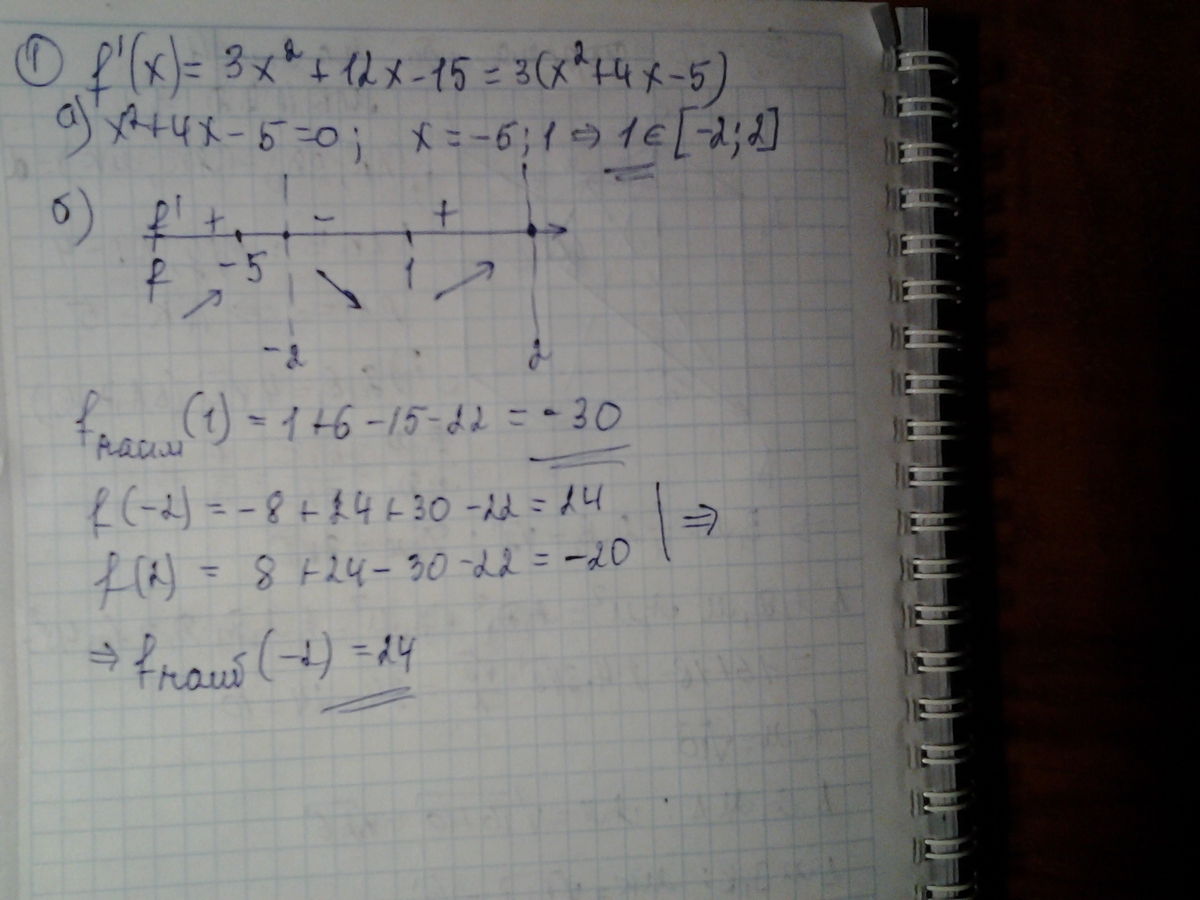 ① f'(x) = 3x² + 12x - 15 = 3(x² + 4x - 5)
а) x² + 4x - 5 = 0; x = -5; 1 ⇒ 1 ∈ [-2; 2]
б) f' + - +
f -5 1
-2 2
fнаим(1) = 1 + 6 - 15 - 22 = -30
f(-2) = -8 + 24 + 30 - 22 = 24 | ⇒
f(2) = 8 + 24 - 30 - 22 = -20
⇒ fнаиб(-2) = 24